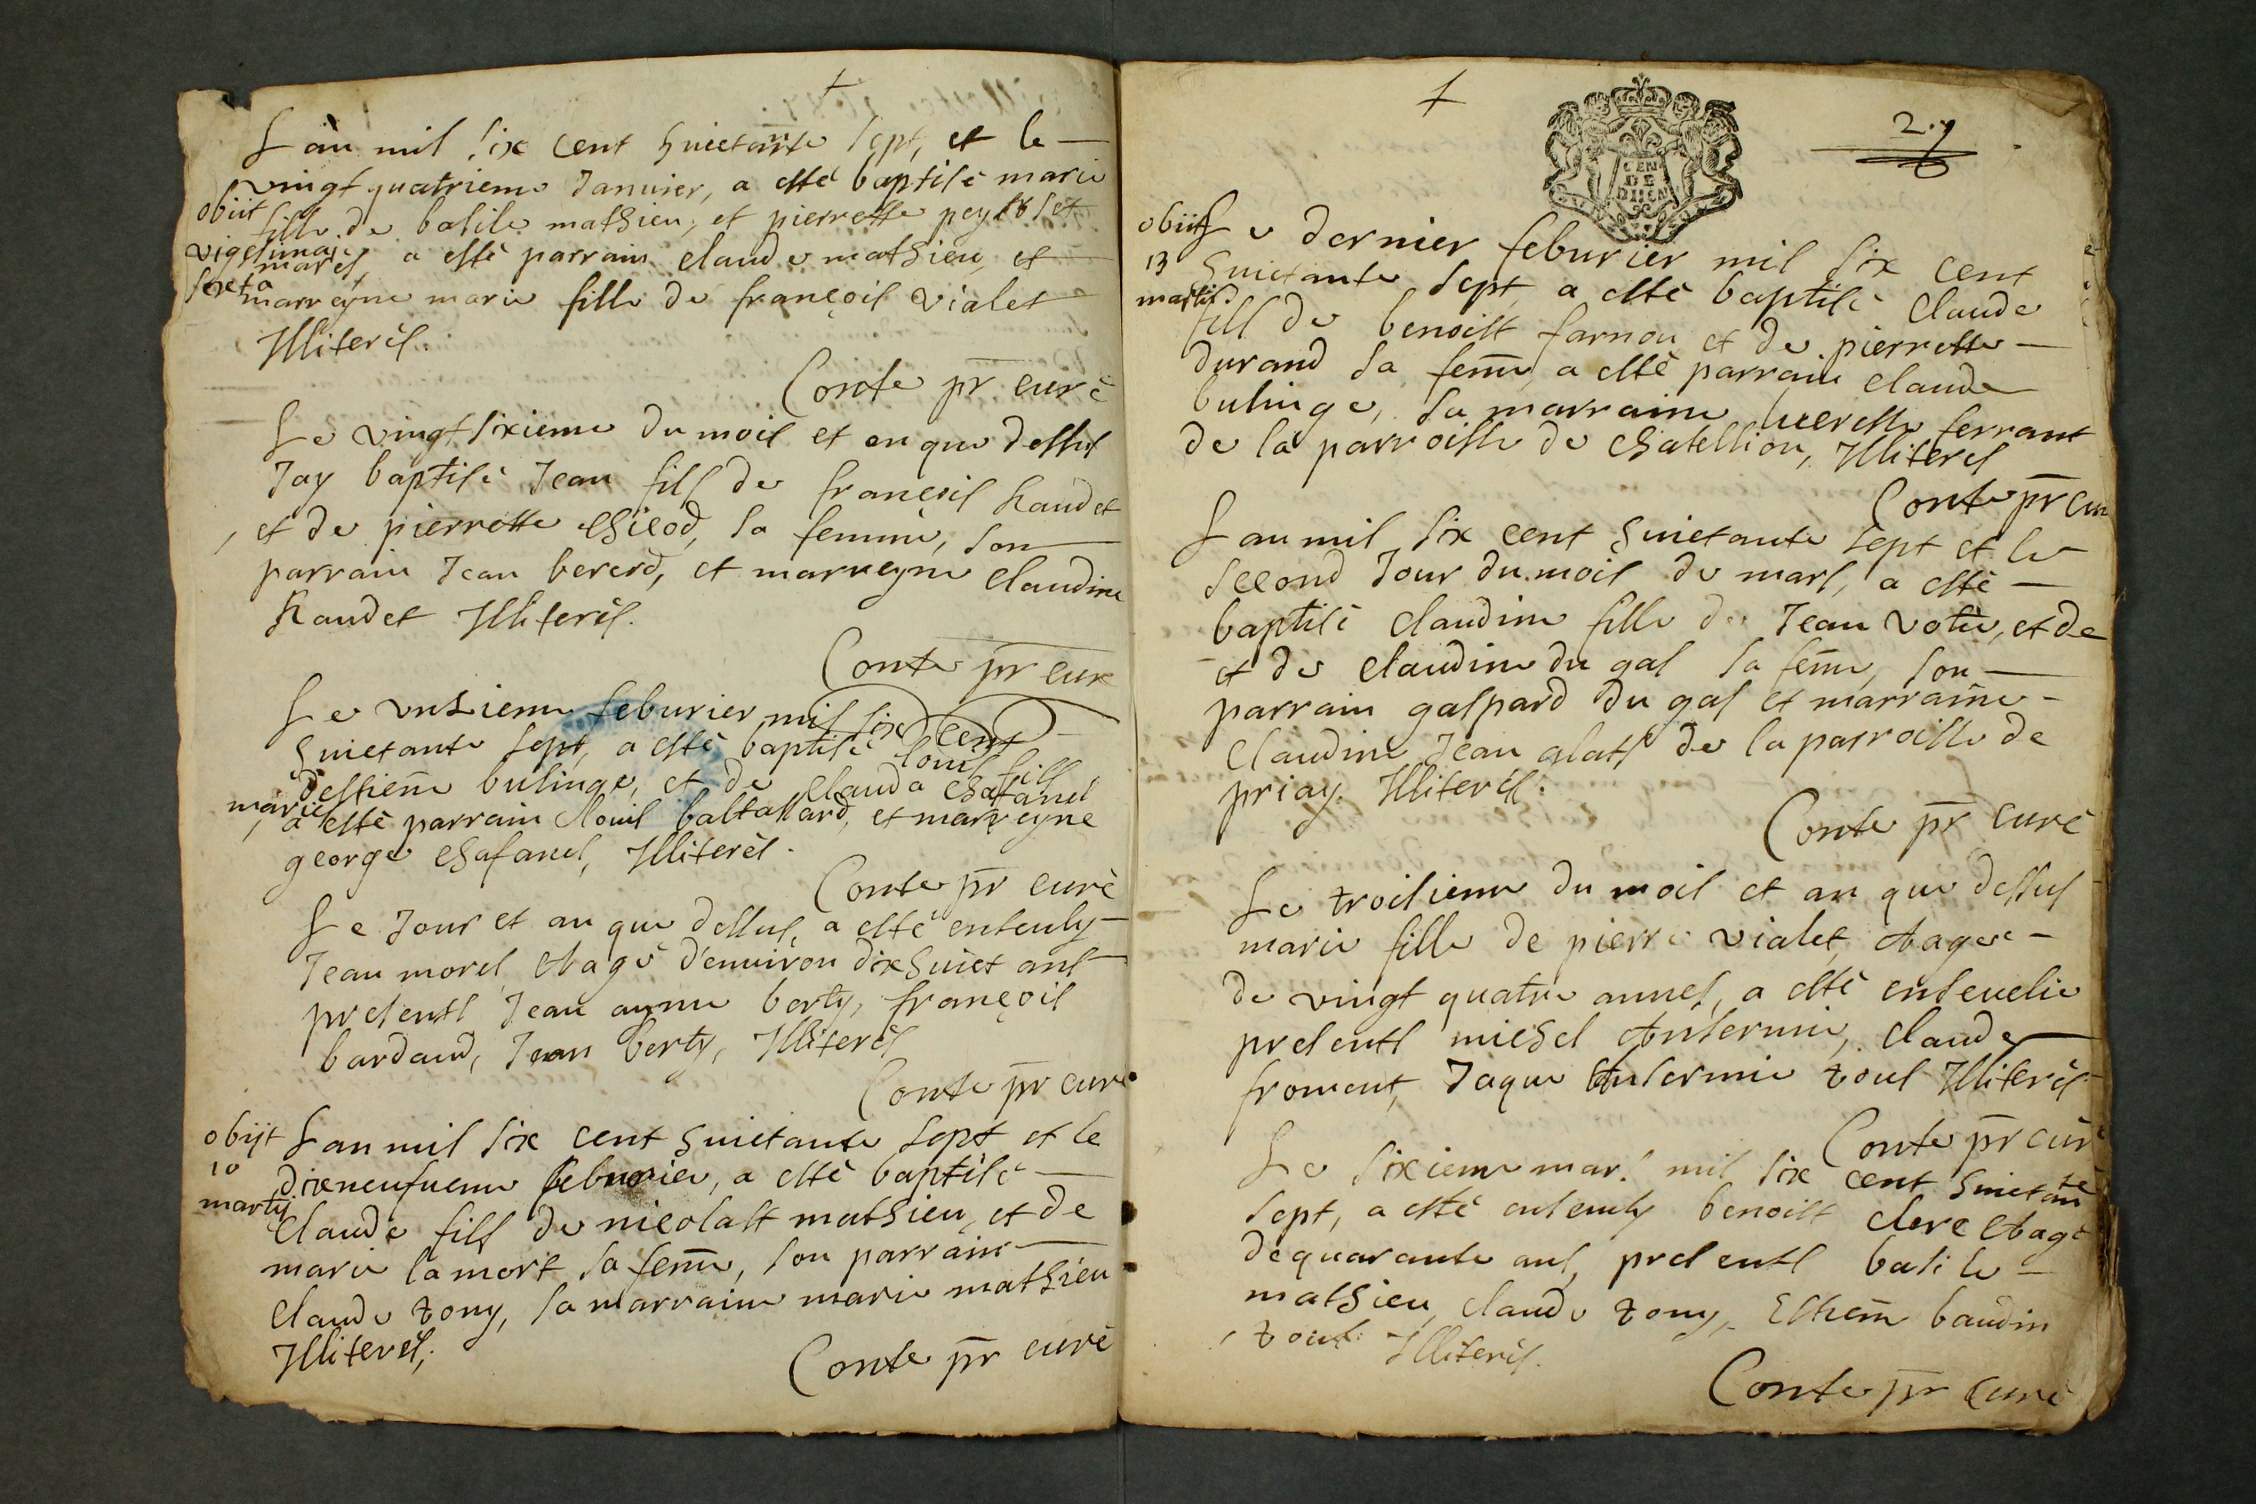 L'an mil six cent huictante sept, et le
vingt quatrieme Januier, a esté baptisé marie
obiit
fille de basile mathieu, et pierrette
vigesima
sexta
martis
a esté parrain claude mathieu, et
marreyne marie fille de françois vialet
Illiterés.
Conte pr curé
Le vingt sixieme du mois et an que dessus
Jay baptisé Jean fils de françois haudet
et de pierrette chicod, sa femme, son
parrain Jean bererd, et marreyne claudine
haudet Illiterés.
Conte pr cure
Le vnzieme feburier mil six cent
huictante sept, a esté baptisé louis fils
destienne bulinge, et de clauda chafanel
marié
a esté parrain louis baltassard, et marreyne
george chafanel, Illiterés.
Conte pr curé
Le Jour et an que dessus, a esté enseuly
Jean morel aagé d'enuiron dix huict ans
presents Jean ayme berty, françois
bardaud, Jean berty, Illiterés
Conte pr curé
obijt
10
martij
L'an mil six cent huictante sept et le
dixneufuieme feburier, a esté baptisé
claude fils de nicolast mathieu, et de
marie lamort sa feme, son parrain
claude tony, sa marraine marie mathieu
Illiterés,
Conte pr curé
2.
CEN
DE
DIIEN
obiit
13
martis
Le dernier feburier mil six cent
huictante sept, a esté baptisé claude
fils de benoist farnou et de pierrette
durand sa feme, a esté parrain claude
bulinge, sa marraine lucresse ferrant
de la parroisse de chatellion, Illiterés
Conte pr cu
L'an mil six cent huictante sept et le
second Jour du mois de mars, a esté
baptisé claudine fille de Jean votié, et de
et de claudine du gas sa feme, son
parrain gaspard du gas et marraine
claudine Jean alats de la parroisse de
priay. Illiterés.
Conte pr curé
Le troisieme du mois et an que dessus
marie fille de pierre vialet, aagee
de vingt quatre annes, a esté enseuelie
presents michel Anserme, claude
froment, Jaque Anserme tous Illiterés
Conte pr curé
Le sixieme mars mil six cent huictante
sept, a esté enseuly benoist clere aagé
dequarante ans, presents basile
mathieu, claude tony, Estiene baudin
tous Illiterés.
Conte pr curé